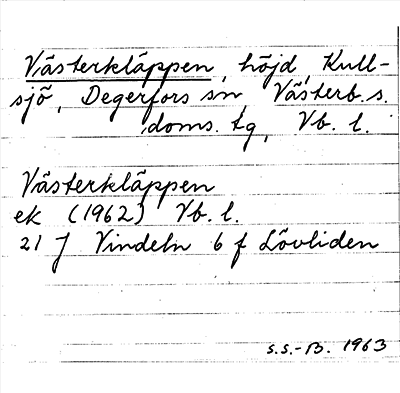 Västerkläppen, höjd, Kull-
sjö, Degerfors sn, Västerb. s.
doms. tg, Vb. l.
Västerkläppen
ek (1962) Vb. l.
21 J Vindeln 6 f Lövliden
s.s.-B. 1963